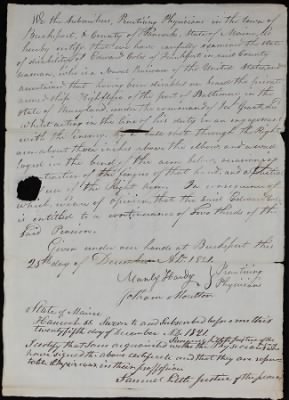 We the Subscribers, Practising Physicians in the town of
Bucksport, & County of Hancock, State of Maine, do
hereby certify that we have carefully examined the state
of disability of Edward Cole of Frankfort in said County
seaman, who is a Naval Pensioner of the United States, and
ascertained that having been disabled on board the private
armed ship of the port of Baltimore in the
State of Maryland, under the command of
whilst acting in the line of his duty in an engagement
with the Enemy, by a ball shot through the Right
arm about three inches above the elbow, and a wound
in the bend of the arm below, occasioning
contraction of the fingers of that hand, and a partial
use of the Right Arm. In consequence of
which, we are of opinion, that the said Edward Cole
is entitled to a continuance of Two thirds of the
said Pension.
Given under our hands at Bucksport this
25th day of December AD 1821.
Manly Hardy } Practising
Moulton } Physicians
State of Maine
Hancock ss. Sworn to and Subscribed before me this
twenty fifth day of December AD 1821
Justice of the
I certify that I am acquainted with the Physicians who
have signed the above certificate and that they are repu-
table Physicians in their profession
Samuel Justice of the peace